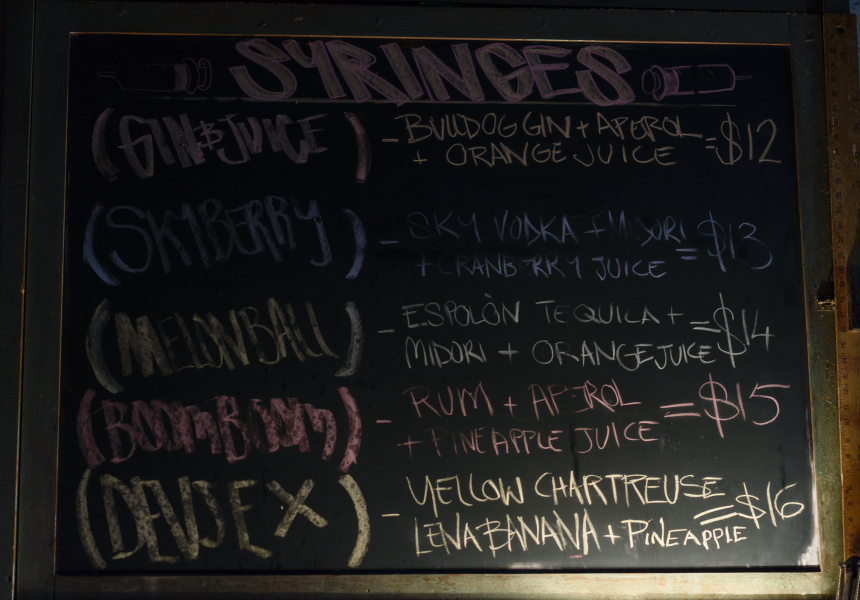 SYRINGES
(GIN & JUICE) - BULLDOG GIN + APEROL
+ ORANGE JUICE = $12
(SKYBERRY) - SKY VODKA + MIDORI
+ CRANBERRY JUICE = $13
(MELONBALL) - ESPOLÒN TEQUILA +
MIDORI + ORANGE JUICE = $14
(BOOMBOOM) - RUM + APEROL
+ PINEAPPLE JUICE = $15
- YELLOW CHARTREUSE
LENA BANANA + PINEAPPLE = $16